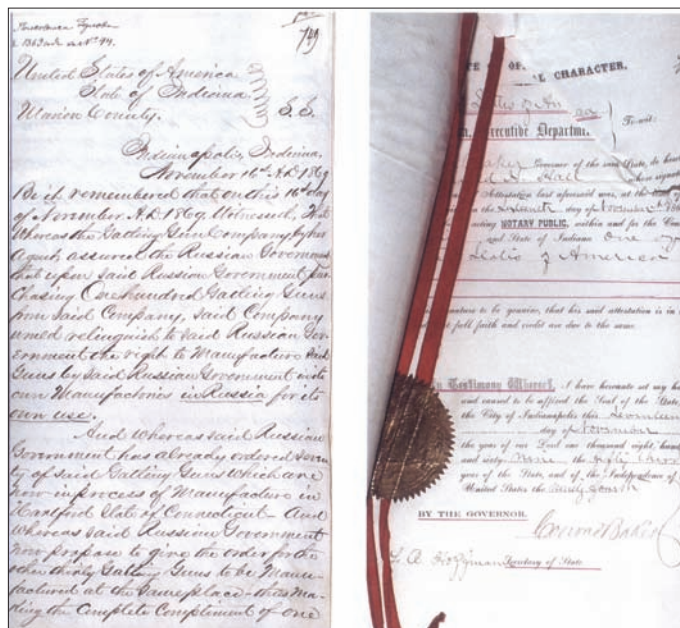 749
United States of America
State of Indiana
Marion County.
S.S.
Indianapolis, Indiana,
November 16th A.D 1869
Be it remembered that on this 16th day
of November A.D. 1869, Witnesseth, That
Whereas the Gatling Gun Company by her
Agent assured the Russian Government
that upon said Russian Government pur-
chasing One hundred Gatling Guns
said Company, said Company
relinquish to said Russian Gov-
ernment the right to Manufacture said
Guns by said Russian Government in its
own Manufactories in Russia for its
own use.
And whereas said Russian
Government has already ordered seven-
ty of said Gatling Guns which are
now in process of Manufacture in
Hartford State of Connecticut - And
Whereas said Russian Government
now propose to give the order for the
other thirty Gatling Guns to be Manu-
factured at the same place - thus Ma-
king the Complete Compliment of one
CHARACTER.
Executive Department
To wit:
Baker Governor of the said State, do
Hall whose
Attestation last aforesaid was, at the
in the day of November
acting NOTARY PUBLIC, within and for the
and State of Indiana
States of America
nature to be genuine, that his said attestation is in
full faith and credit are due to the same.
In Testimony Whereof, I have hereunto set my
and caused to be affixed the Seal of the State,
the City of Indianapolis this
day of November
the year of our Lord one thousand eight
and sixty Nine the
year of the State, and of the Independence of
United States the
BY THE GOVERNOR.
Conrad Baker
Secretary of State